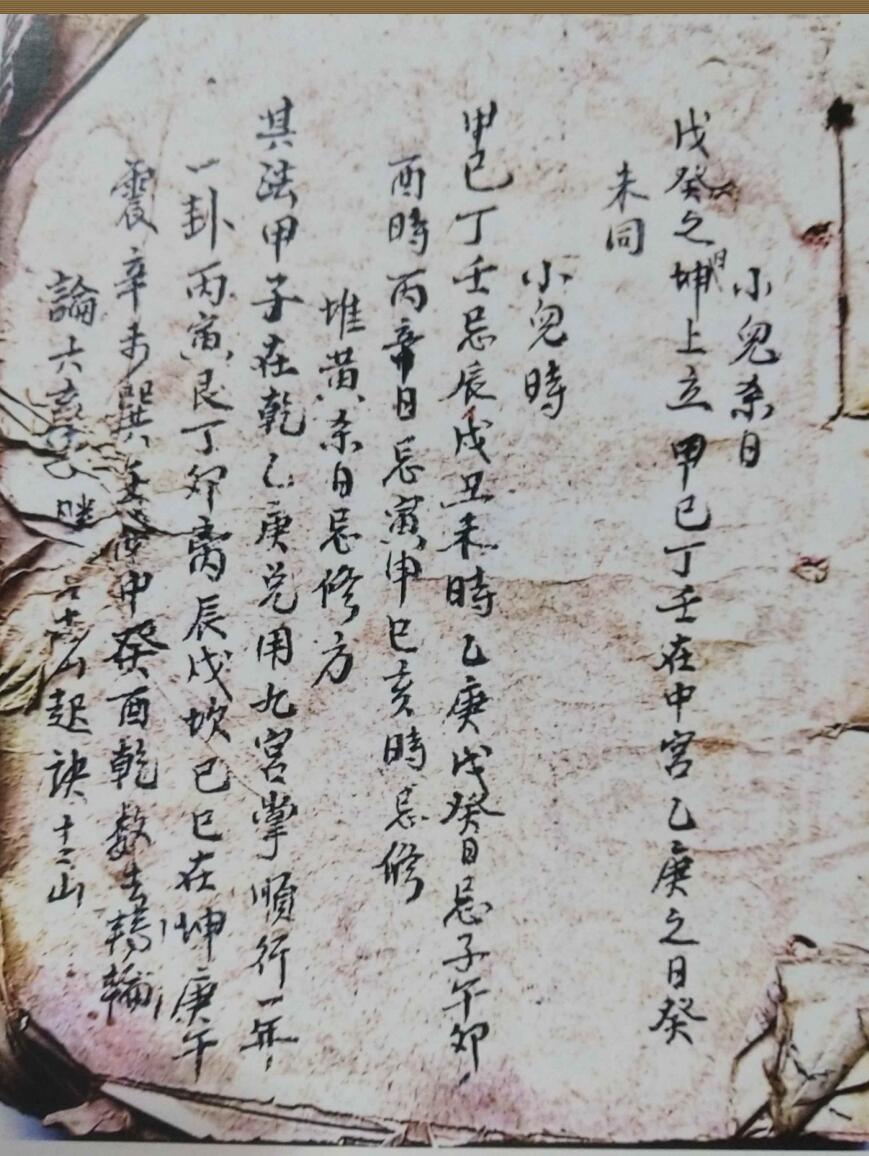 小兒杀日
戊癸之日坤上立甲己丁壬在中宮乙庚之日癸
未同
小兒時
甲己丁壬忌辰戌丑未時乙庚戊癸日忌子午卯
酉時丙辛日忌寅申巳亥時忌修
堆黄杀日忌修方
其法甲子在乾乙庚兑用九宮掌順行一年
一卦丙寅艮丁卯离辰戊坎己巳在坤庚午
震辛未巽甲癸酉乾数去轉輪
論六起訣十二山